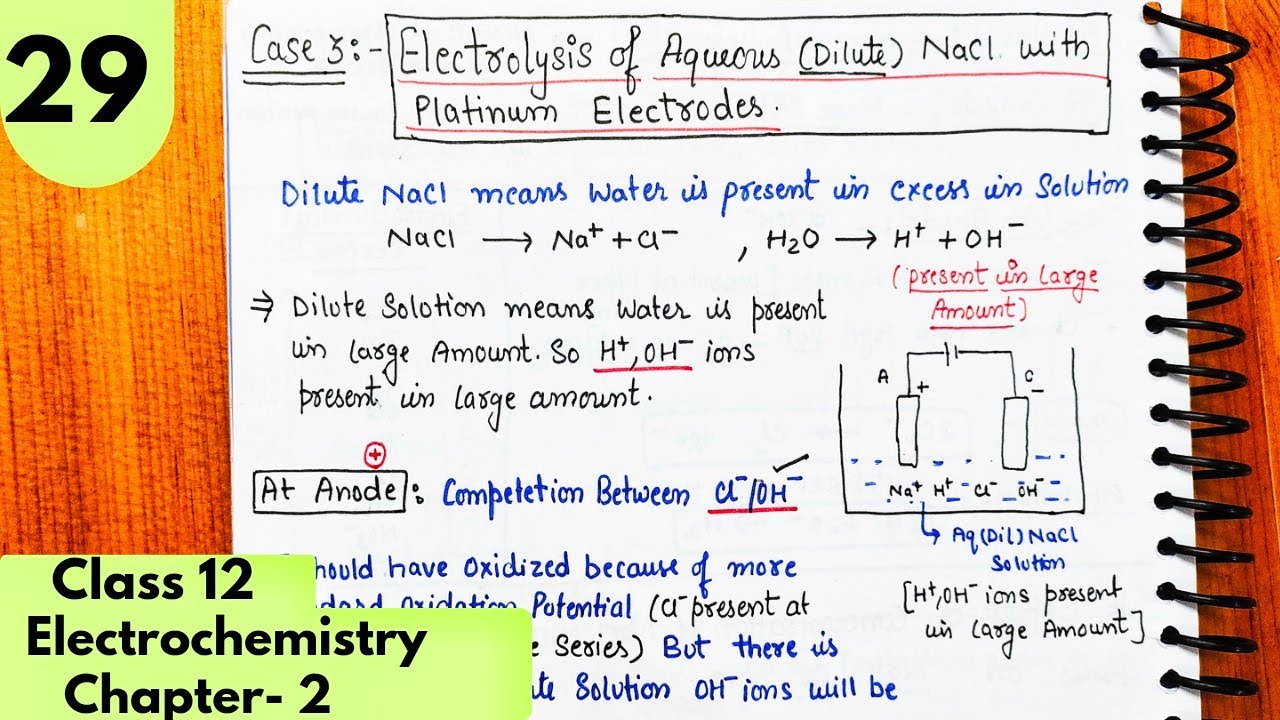 29
Case 3:- Electrolysis of Aqueous (Dilute) NaCl. with
Platinum Electrodes.
Dilute NaCl means water is present in excess in Solution
NaCl ⟶ Na⁺ + Cl⁻ , H₂O ⟶ H⁺ + OH⁻
(present in large
Amount)
⇒ Dilute Solution means water is present
in large Amount. So H⁺, OH⁻ ions
present in large amount.
A + C −
Na⁺ H⁺ Cl⁻ OH⁻
Aq(Dil) NaCl
Solution
[H⁺, OH⁻ ions present
in large Amount]
+
At Anode: Competetion Between Cl⁻/OH⁻ ✓
have oxidized because of more
Oxidation Potential (Cl⁻ present at
Series) But there is
Solution OH⁻ ions will be
Class 12
Electrochemistry
Chapter- 2